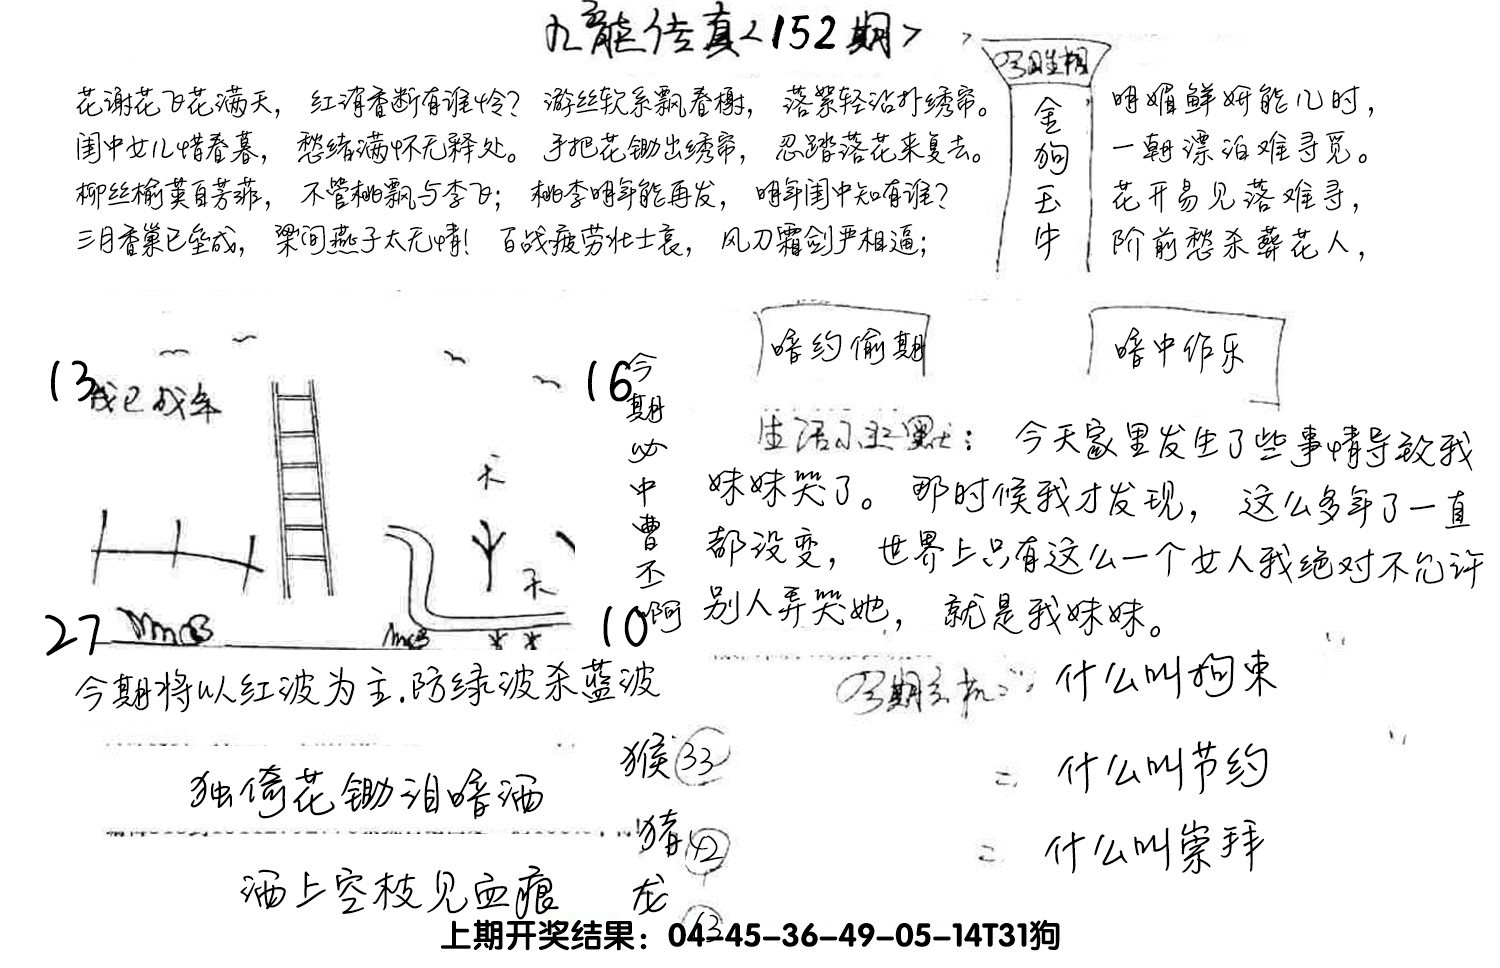 九龙传真<152期>
花谢花飞花满天，红消香断有谁怜？游丝软系飘春榭，落絮轻沾扑绣帘。
闺中女儿惜春暮，愁绪满怀无释处。手把花锄出绣帘，忍踏落花来复去。
柳丝榆荚自芳菲，不管桃飘与李飞；桃李明年能再发，明年闺中知有谁？
三月香巢已垒成，梁间燕子太无情！百战疲劳壮士哀，风刀霜剑严相逼；
今期生相
金狗玉牛
明媚鲜妍能几时，
一朝漂泊难寻觅。
花开易见落难寻，
阶前愁杀葬花人，
13
我已成年
16
天
天
27
10
今期必中曹丕啊
暗约偷期
暗中作乐
生活小幽默：今天家里发生了些事情导致我
妹妹哭了。那时候我才发现，这么多年了一直
都没变，世界上只有这么一个女人我绝对不允许
别人弄哭她，就是我妹妹。
今期将以红波为主.防绿波杀蓝波
今期玄机：什么叫拘束
= 什么叫节约
= 什么叫崇拜
独倚花锄泪暗洒
洒上空枝见血痕
猴33
猪42
龙13
上期开奖结果：04-45-36-49-05-14T31狗